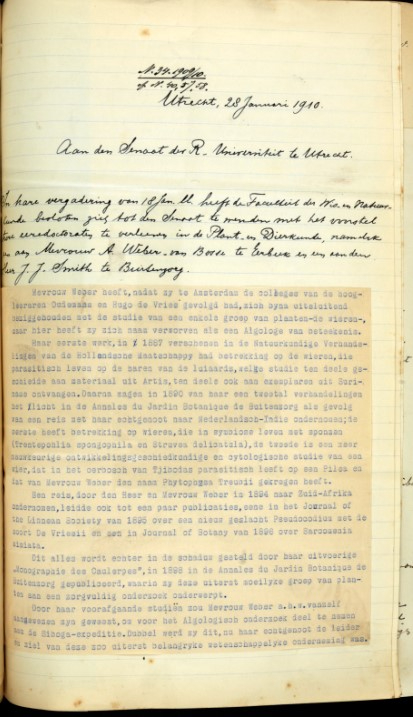 N. 34. 1909/10.
Utrecht, 28 Januari 1910.
Aan den Senaat der R. Universiteit te Utrecht.
In hare vergadering van 18 Jan. ll. heeft de Faculteit der Wis. en Natuur-
kunde besloten zich tot den Senaat te wenden met het voorstel
eredoctoraten te verleenen in de Plant- en Dierkunde, namelijk
aan Mevrouw A. Weber-van Bosse te Eerbeek en aan den
Heer J. J. Smith te Buitenzorg.
Mevrouw Weber heeft, nadat zy te Amsterdam de colleges van de hoog-
leeraren Oudemans en Hugo de Vries gevolgd had, zich byna uitsluitend
bezig gehouden met de studie van een enkele groep van planten-de wieren-,
maar hier heeft zy zich naam verworven als een Algologe van beteekenis.
Haar eerste werk, in 1887 verschenen in de Natuurkundige Verhande-
lingen van de Hollandsche Maatschappy had betrekking op de wieren, die
parasitisch leven op de haren van de luiaards, welke studie ten deele ge-
schiedde aan materiaal uit Artis, ten deele ook aan exemplaren uit Suri-
name ontvangen. Daarna zagen in 1890 van haar een tweetal verhandelingen
het licht in de Annales du Jardin Botanique de Buitenzorg als gevolg
van een reis met haar echtgenoot naar Nederlandsch-Indie ondernomen; de
eerste heeft betrekking op wieren, die in symbiose leven met sponsen
(Trentepohlia spongophila en Struvea delicatula), de tweede is een zeer
nauwkeurige ontwikkelingsgeschiedkundige en cytologische studie van een
wier, dat in het oerbosch van Tjibodas parasitisch leeft op een Pilea en
dat van Mevrouw Weber den naam Phytophysa Treubii gekregen heeft.
Een reis, door den Heer en Mevrouw Weber in 1894 naar Zuid-Afrika
ondernomen, leidde ook tot een paar publicaties, eene in het Journal of
the Linnean Society van 1895 over een nieuw geslacht Pseudocodium met de
soort De Vriesii en een in Journal of Botany van 1896 over Sarcomenia
miniata.
Dit alles wordt echter in de schaduw gesteld door haar uitvoerige
"Monographie des Caulerpes", in 1898 in de Annales du Jardin Botanique de
Buitenzorg gepubliceerd, waarin zy deze uiterst moeilyke groep van plan-
ten aan een zorgvuldig onderzoek onderwerpt.
Door haar voorafgaande studiën zou Mevrouw Weber a.h.w. vanzelf
aangewezen zyn geweest, om voor het Algologisch onderzoek deel te nemen
aan de Siboga-expeditie. Dubbel werd zy dit, nu haar echtgenoot de leider
en ziel van deze zoo uiterst belangryke wetenschappelyke onderneming was.